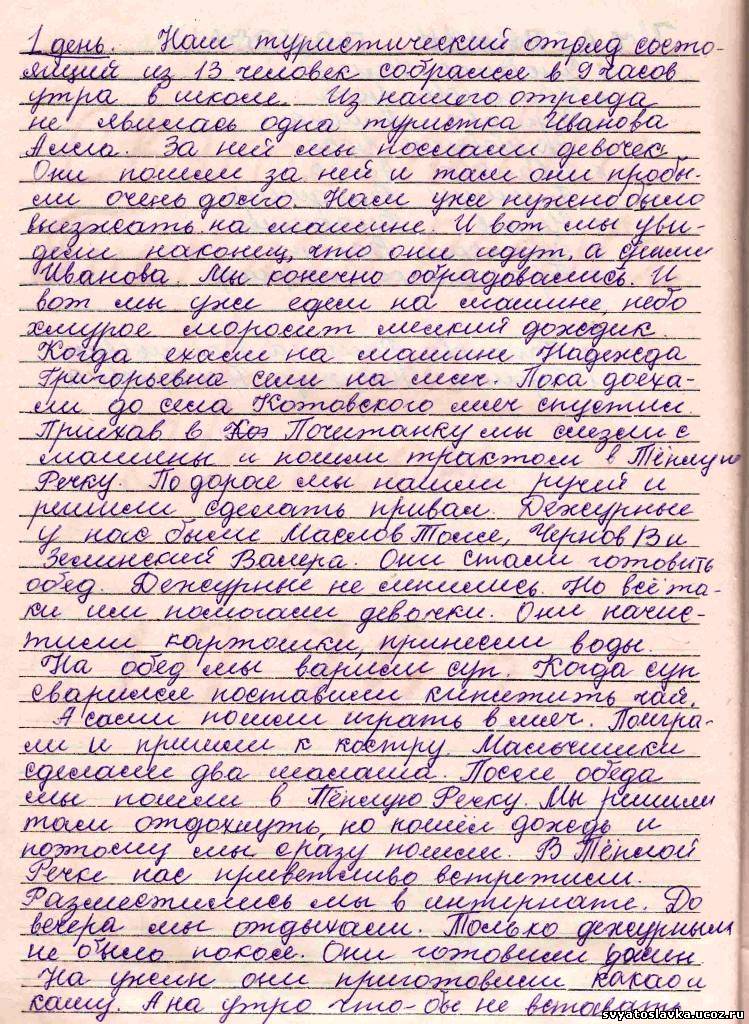 1 день. Наш туристический отряд состо-
ящий из 13 человек собрался в 9 часов
утра в школе. Из нашего отряда
не явилась одна туристка Иванова
Алла. За ней мы послали девочек
Они пошли за ней и там они пробы-
ли очень долго. Нам уже нужно было
выезжать на машине. И вот мы уви-
дели наконец, что они идут, а с ними
Иванова. Мы конечно обрадовались. И
вот мы уже едем на машине, небо
хмурое моросит мелкий дождик.
Когда ехали на машине Надежда
Григорьевна сели на мяч. Пока доеха-
ли до села Котовского мяч спустил.
Приехав в Почитанку мы слезли с
машины и пошли трактом в Тёплую
Речку. По дороге мы нашли ручей и
решили сделать привал. Дежурные
у нас были Маслов Толя, Чернов В и
Зелинский Валера. Они стали готовить
обед. Дежурные не ленились. Но всё та-
ки им помогали девочки. Они начис-
тили картошки, принесли воды.
На обед мы варили суп. Когда суп
сварился поставили кипятить чай.
А сами пошли играть в мяч. Поигра-
ли и пришли к костру. Мальчишки
сделали два шалаша. После обеда
мы пошли в Тёплую Речку. Мы решили
там отдохнуть, но пошёл дождь и
поэтому мы сразу пошли. В Тёплой
Речке нас приветливо встретили.
Разместились мы в интернате. До
вечера мы отдыхали. Только дежурным
не было покоя. Они готовили
На ужин они приготовили какао и
кашу. А на утро что-бы не вставать
svyatoslavka.ucoz.ru